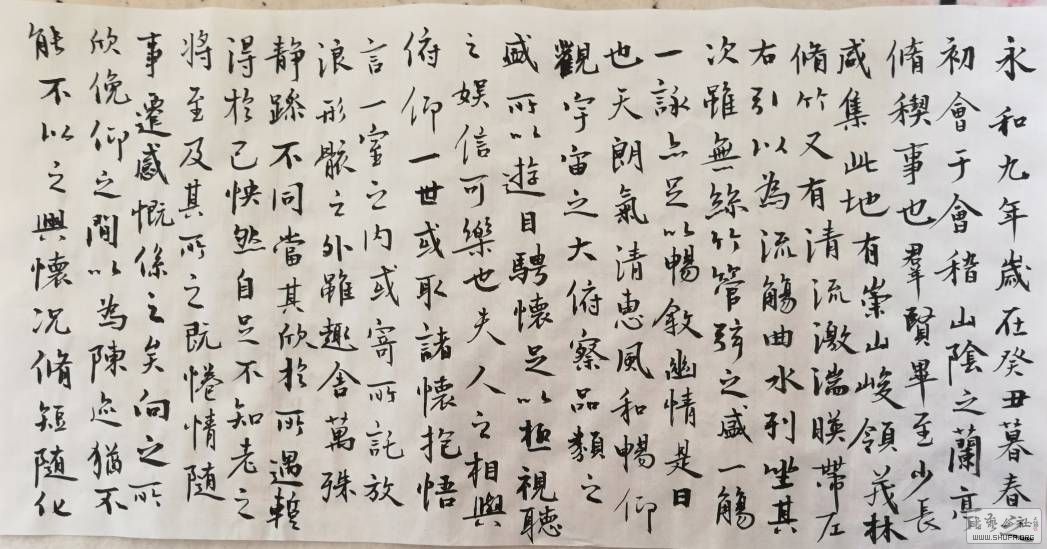 永和九年歲在癸丑暮春之
初會于會稽山陰之蘭亭
脩稧事也羣賢畢至少長
咸集此地有崇山峻領茂林
脩竹又有清流激湍暎帶左
右引以為流觴曲水列坐其
次雖無絲竹管弦之盛一觴
一詠亦足以暢敘幽情是日
也天朗氣清惠風和暢仰
觀宇宙之大俯察品類之
盛所以遊目騁懷足以極視聽
之娛信可樂也夫人之相與
俯仰一世或取諸懷抱悟
言一室之內或寄所託放
浪形骸之外雖趣舍萬殊
静躁不同當其欣於所遇暫
得於己怏然自足不知老之
將至及其所之既惓情隨
事遷感慨係之矣向之所
欣俛仰之間以為陳迹猶不
能不以之興懷况脩短隨化
書藝公社
WWW.SHUFA.ORG